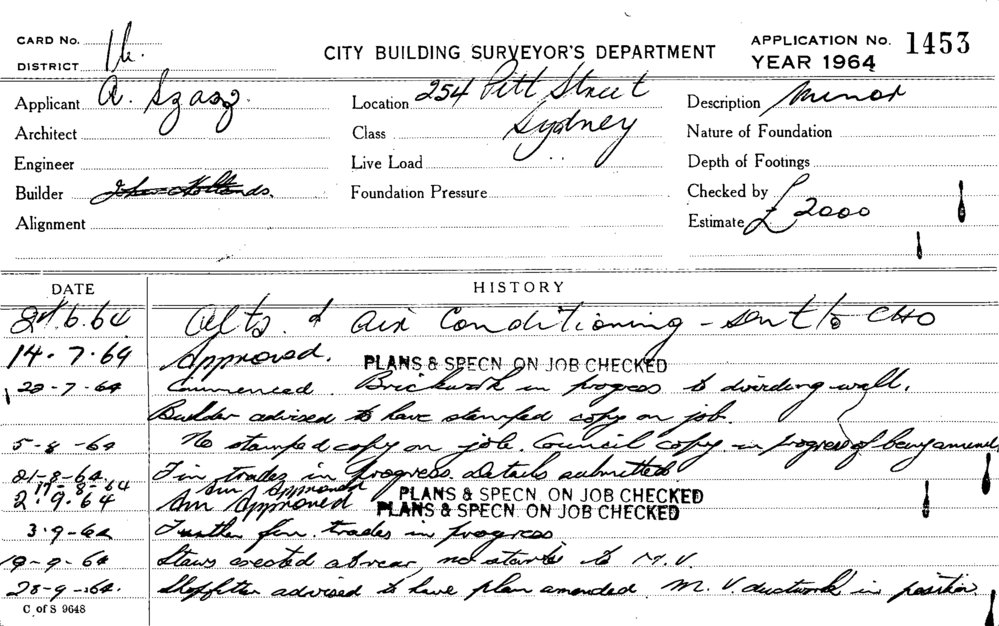 CARD No. 16.
DISTRICT
CITY BUILDING SURVEYOR'S DEPARTMENT
APPLICATION No. 1453
YEAR 1964
Applicant A. Szasz.
Location 254 Pitt Street
Sydney
Description Minor
Architect
Class
Nature of Foundation
Engineer
Live Load
Depth of Footings
Builder John Hollands.
Foundation Pressure
Checked by
Alignment
Estimate £2000
DATE HISTORY
.6.64 Alts. & Air Conditioning - sent to CHO
14.7.64 Approved. PLANS & SPECN. ON JOB CHECKED
-7-64 Commenced. Brickwork in progess to dividing wall.
Builder advised to have stamped copy on job.
5-8-64 No stamped copy on job. Council copy in progress of being amend
21-8-64 Fin trades in progress. details submitted
17-8-64 Am Approved PLANS & SPECN. ON JOB CHECKED
2.9.64 Am Approved PLANS & SPECN. ON JOB CHECKED
3-9-64 Further fin. trades in progress
-9-64 Stairs erected at rear, no to M.V.
-9-64. Shopfitter advised to have plan amended. M.V. ductwork in position
C of S 9648